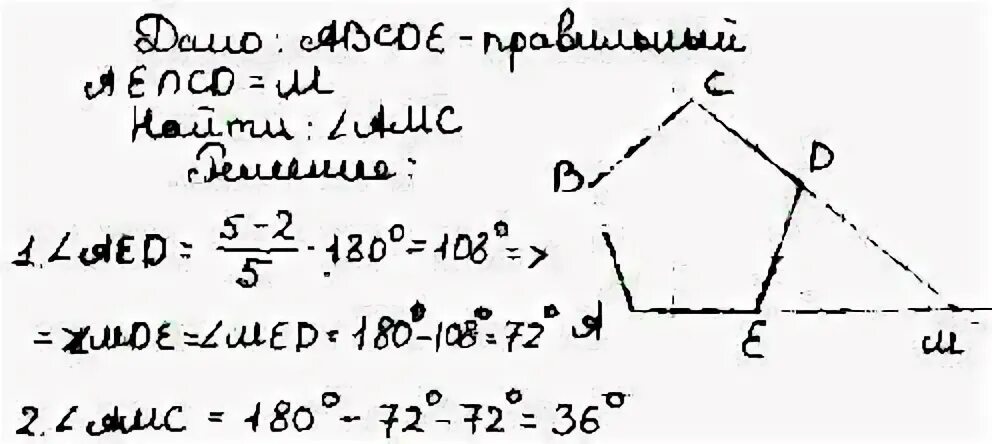 Дано: ABCDE - правильный
AE∩CD = M
Найти: ∠AMC
Решение:
1. ∠AED = 5-2/5 · 180° = 108° =>
= ∠MDE = ∠MED = 180° - 108° = 72°
2. ∠AMC = 180° - 72° - 72° = 36°
C
B
D
A
E
M